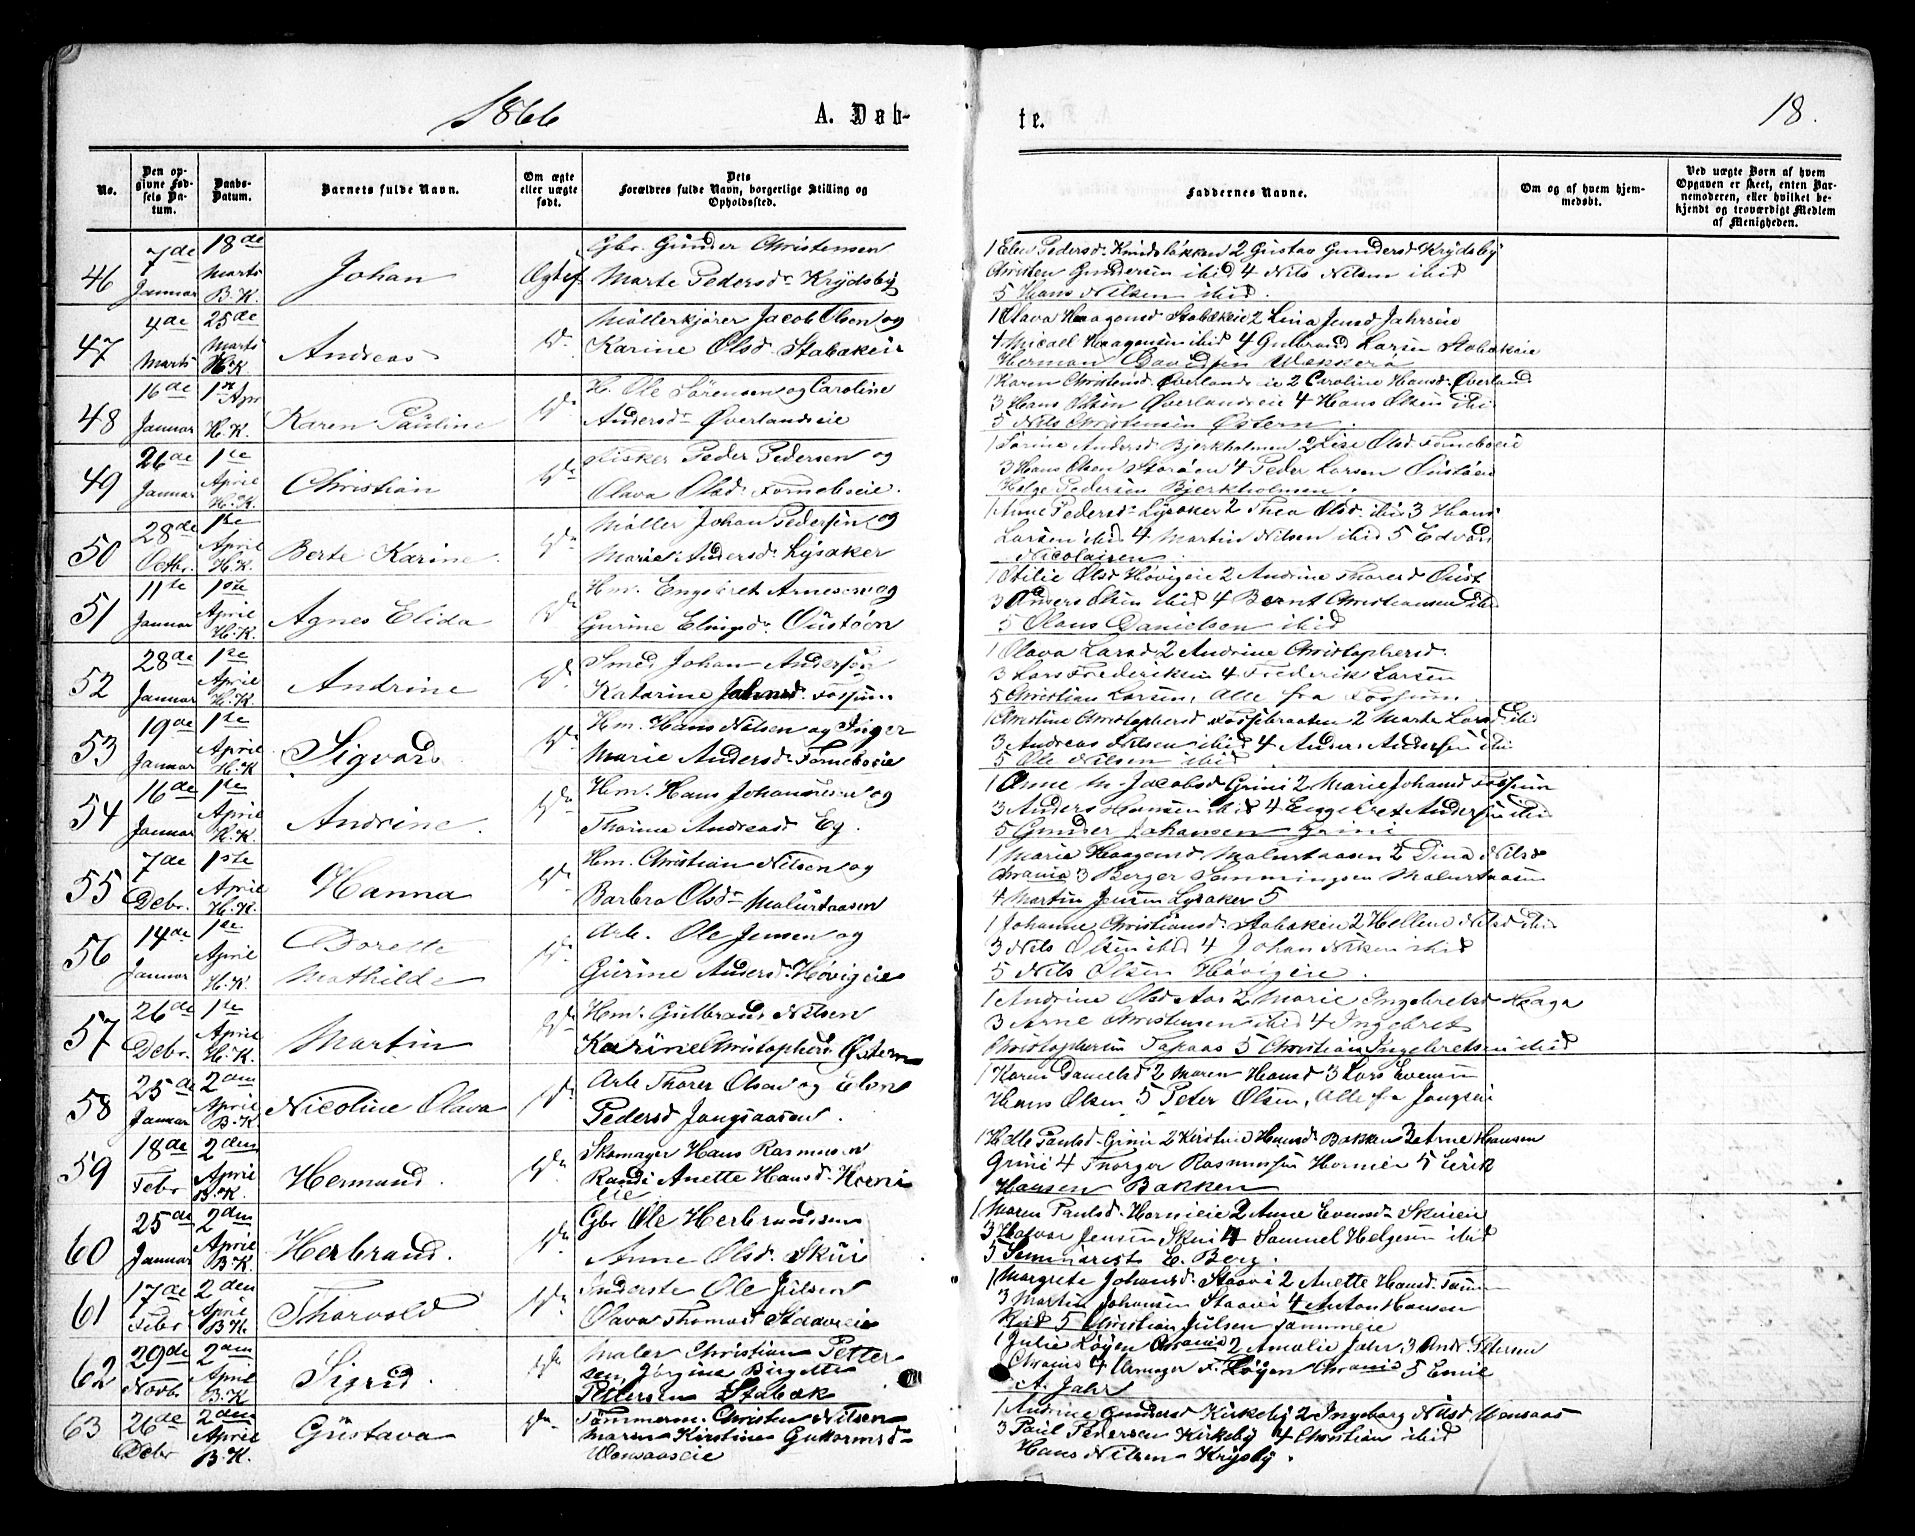 1866
A. Døb-
te.
18.
No.
Den op-
givne Fød-
sels Da-
tum.
Daabs-
Datum.
Barnets fulde Navn.
Om ægte
eller uægte
født.
Dets
Forældres fulde Navn, borgerlige Stilling og
Opholdssted.
Faddernes Navne.
Om og af hvem hjem-
medøbt.
Ved uægte Børn af hvem
Opgaven er skeet, enten Bar-
nemoderen, eller hvilket be-
kjendt og troværdigt Medlem
af Menigheden.
46
7de
Januar
18de
Marts
B. K.
Johan
Gbr. Gunder Christensen
Marte Pedersd. Krydsby
2 Gustav Gundersd Krydsby
Christen Gundersen ibid 4 Nils Nilsen ibid
5 Hans Nilsen ibid.
47
4de
Marts
25de
Marts
H.K
Andreas
Do
Møllerkjører Jacob Olsen og
Karine Olsd. Stabækeie
1 Olava Haagensd Stabækeie 2 Lina Jensd Jahrseie
Micael Haagensen ibid 4 Gulbrand Larsen Stabækeie
Herman Davidsen
48
16de
Januar
1ste Apr
H. K.
Karen Pauline
Do
H. Ole Sørensen og Caroline
Andersd. Øverlandseie
1 Karen Christensd. Øverlandseie 2 Caroline Hansd. Øverland
3 Hans Olsen Øverlandseie 4 Hans Olsen ibid
5 Nils Christensen Østern.
49
26de
Januar
1ste
April
H. K.
Christian
Do
Fisker Peder Pedersen og
Olava Olsd. Forneboeie.
1 Andersd Bjerkholmen 2 Lise Olsd Forneboeie
3 Hans Olsen Storøen 4 Peder Larsen Oustøen
Helge Pedersen Bjerkholmen.
50
28de
Octbr.
1ste
April
H. K.
Berte Karine.
Do
Møller Johan Pedersen og
Marie Andersd. Lysaker
1 Anne Pedersd. Lysaker 2 Thea Olsd. ibid 3 Hans
Larsen ibid 4 Martin Nilsen ibid 5 Edvard
Nicolaisen.
51
11te
Januar
1ste
April
H. K.
Agnes Elida
Do
Hm. Engebret Arnesen og
Gurine Oustøen
1 Otilie Olsd Høvigeie 2 Andrine Thoresd Oust
3 Anders Olsen ibid 4 Bernt Christiansen ibid
5 Danielsen ibid
52
28de
Januar
1ste
April
H. K.
Andrine
Do
Smed, Johan Andersen
Katarine Johnsd. Fossum
1 Olava Larsd. 2 Andrine Christophersd.
3 Lars Frederiksen 4 Frederik Larsen
5 Christian Larsen, Alle fra Fossum.
53
19de
Januar
1ste
April
H. K
Sigvard.
Do
Hm. Hans Nilsen og Inger
Marie Andersd. Forneboeie
Christophersd 2 Marte Larsd ibid
3 Andreas Nilsen ibid 4 Anders Andersen ibid
5 Ole Nilsen ibid
54
16de
Januar
1ste
April
H. K.
Andrine.
Do
Hm. Hans Johannesen og
Thorina Andreasd Eg.
1 Anne M. Jacobsd Grini 2 Marie Johansd Fossum
3 Anders Hansen ibid 4 Engebret Andersen ibid
5 Gunder Johansen Grini
55
7de
Debr.
1ste
April
H. K.
Hanna
Do
Hm. Christian Nilsen og
Barbro Olsd. Malurtaasen
1 Marie Haagensd. Malurtaasen 2 Dina Nilsd
3 Berger Malurtaasen
4 Martin Jensen Lysaker 5
56
14de
Januar
1ste
April
H. K.
Borette
Mathilde
Do
Arb. Ole Jensen og
Gurine Andersd. Høvigeie
1 Johanne Christiansd. Stabækeie 2 Hellene Nilsd ibid
3 Nils Olsen ibid 4 Johan Nilsen ibid
5 Nils Olsen Høvigeie.
57
26de
Debr.
1ste
April
H. K.
Martin
Do
Hm. Gulbrand Nilsen
Karine Christophersd. Østern
1 Andrine Olsd Aas 2 Marie Ingebretsd Haga
3 Arne Christensen ibid 4 Ingebret
Christophersen 5 Christian Ingebretsen ibid
58
25de
Januar
2den
April
B. K
Nicoline Olava
Do
Arb Thorer Olsen og Elen
Pedersd Jongsaasen.
1 Karen Danielsd 2 Maren Hansd 3 Lars Evensen
Hans Olsen 5 Peter Olsen, Alle fra Jongseie
59
18de
Febr
2den
April
B. K.
Hermand.
Do
Skomager Hans Rasmusen
Randi Anette Hansd. Horni
eie
1 Helle Paulsd. Grini 2 Kirstine Hansd. Bakken 3 Arne Hansen
Grini 4 Thorger Rasmusen Hornieie 5 Eirik
Hansen Bakken
60
25de
Januar
2den
April
B. K.
Herbrand.
Do
Gbr Ole Herbrandsen
Anne Olsd. Skui
1 Maren Paulsd. Hornieie 2 Anne Evensd. Skuieie
3 Halvor Jensen Skui 4 Samuel Helgesen ibid
5 Seminarist E. Berg.
61
17de
Febr
2den
April
B. K.
Thorvald
Do
Inderste Ole Julsen
Olava Thomasd Staavieie
1 Margrete Johansd. Staavi 2 Anette Hansd.
3 Martin Johansen Staavi 4 Anton Hansen
ibid 5 Christian Julsen
62
29de
Novbr
2den
April
B. K
Sigrid.
Do
Maler Christian Petter
sen Jørgine Birgitte
Pettersen Stabæk
1 Julie Løyen 2 Amalie Jahr 3 Petersen
5 Emil
A. Jahr
63
26de
Debr
2den
April
B. K.
Gustava
Do
Tømmerm. Christen Nilsen
Maren Kirstine Guttormsd.
1 Andrine Gundersd Kirkeby 2 Ingeborg Nilsd
3 Paul Pedersen Kirkeby 4 Christian ibid
Hans Nilsen Krysby.